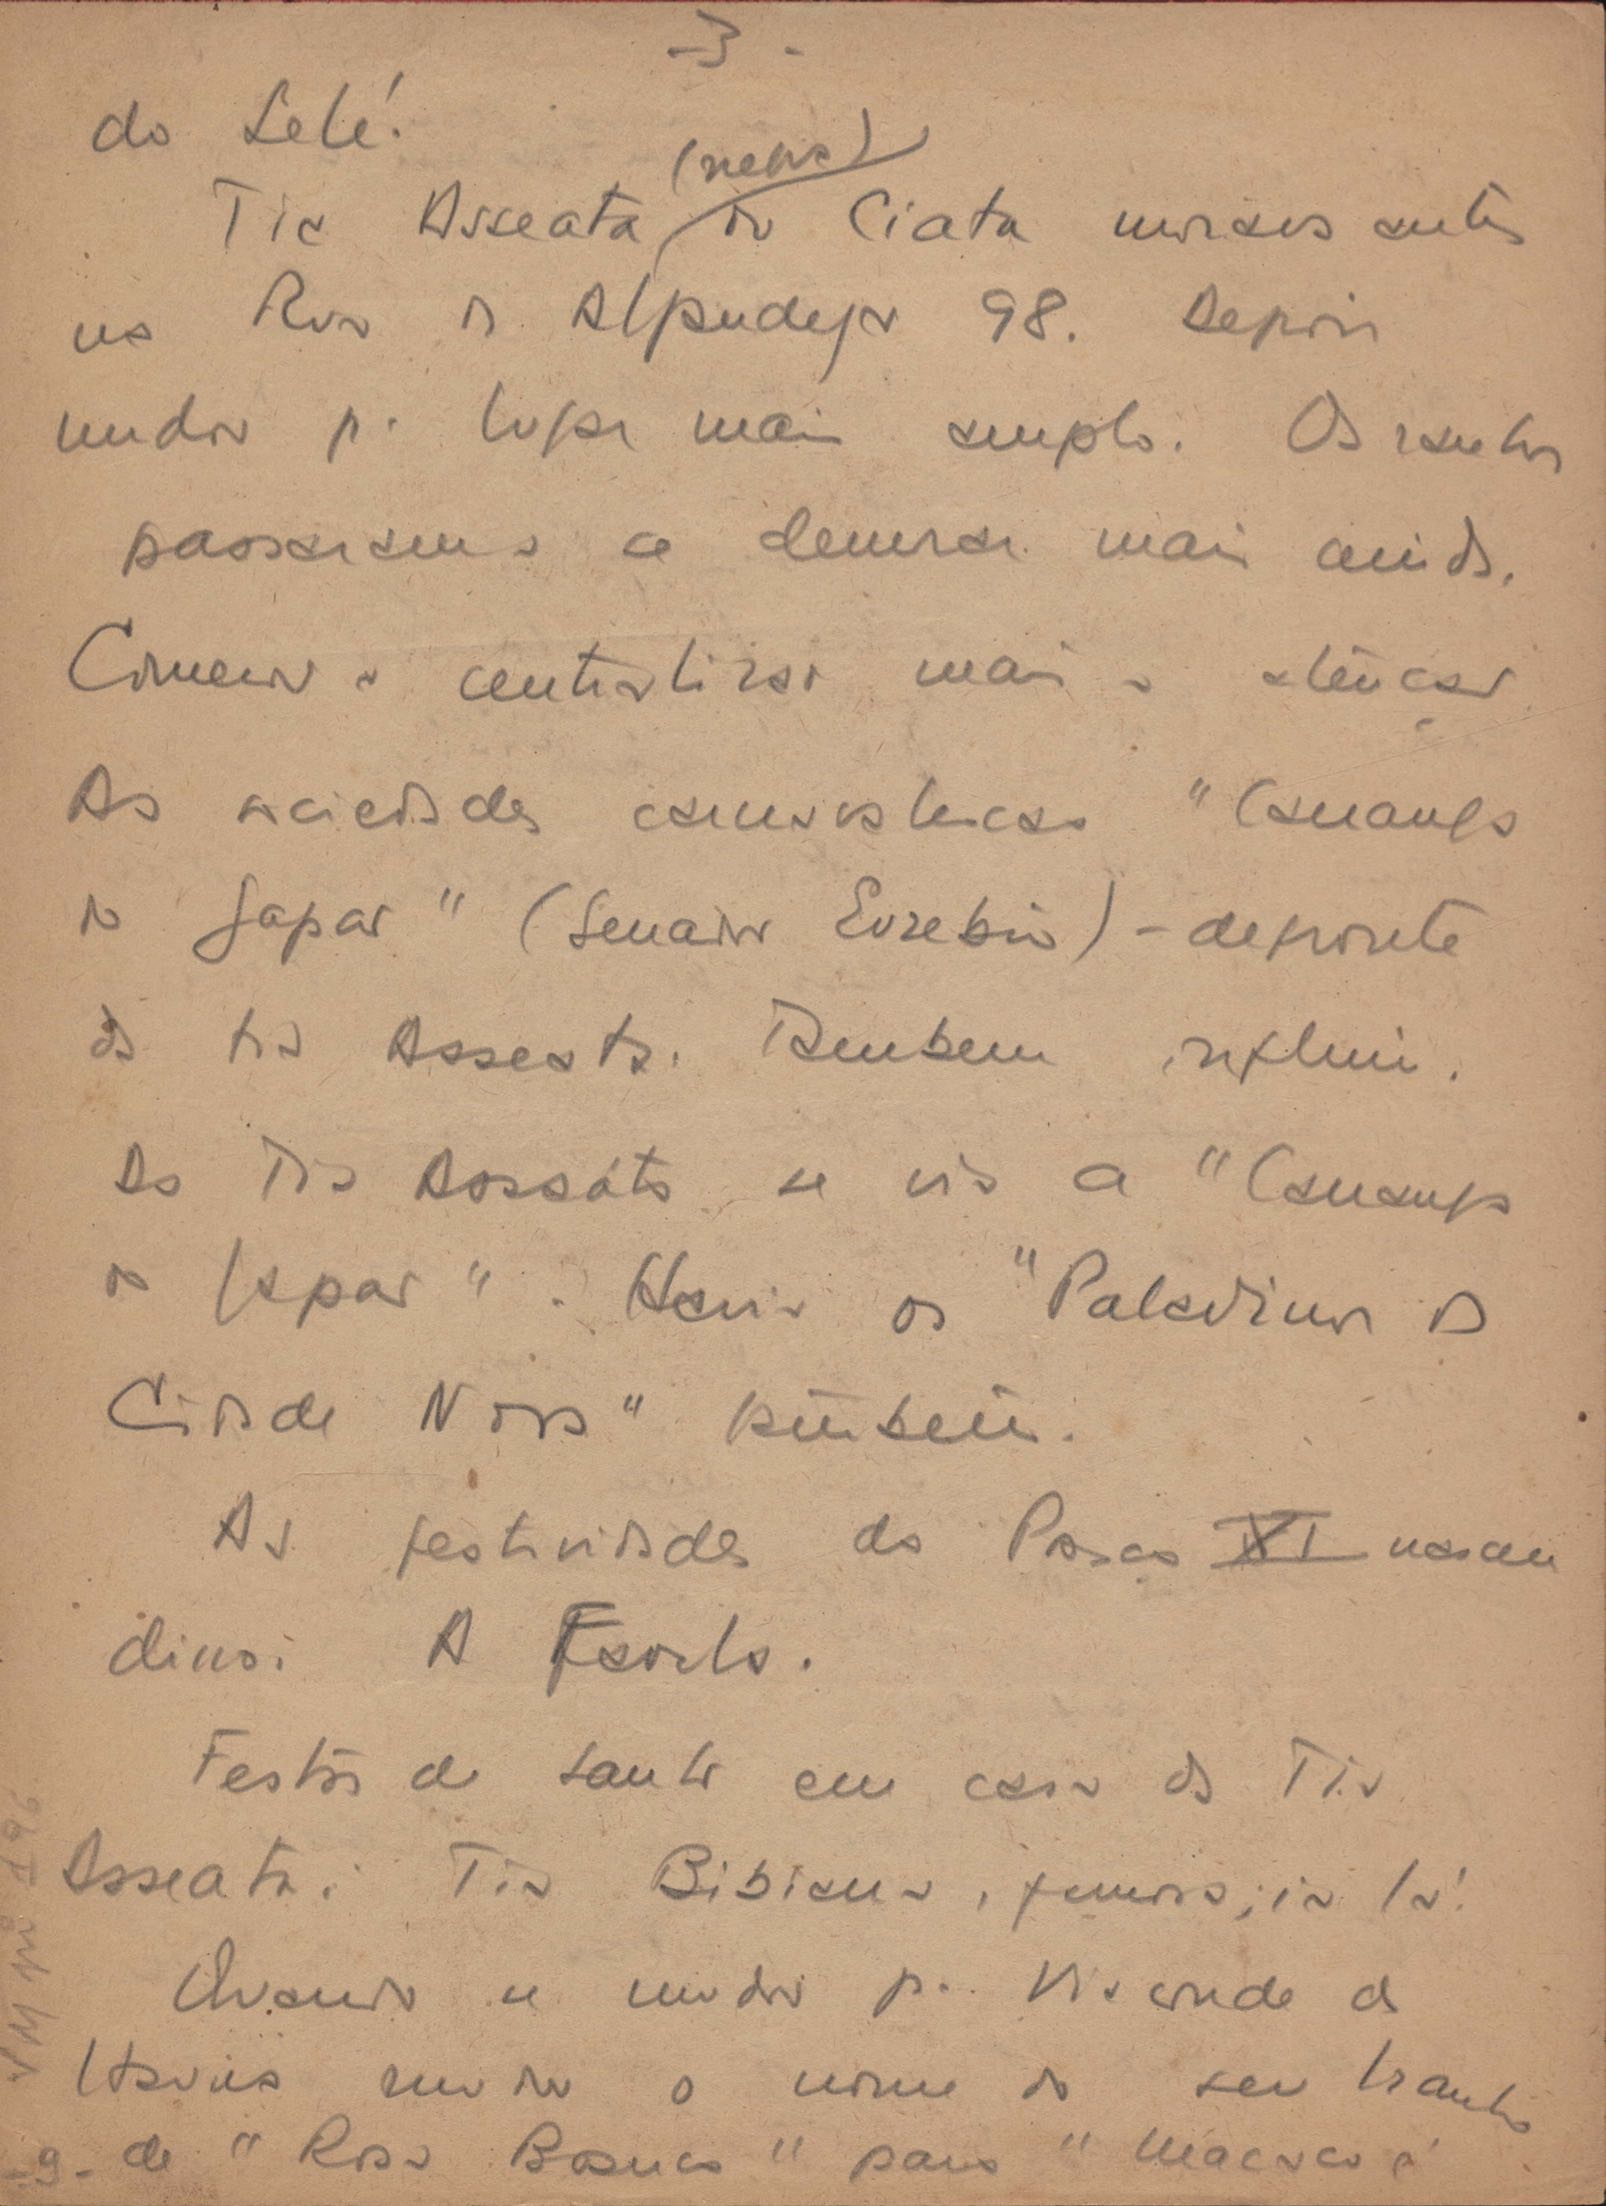 -3-
do Lelé.
(nessa)
Tia Asseata ou Ciata morava antes
na Rua da Alfandega 98. Depois
mudou p. lugar mais amplo. Os ranchos
passaram a demorar mais ainda.
Começou a centralizar mais a atenção
As sociedades carnavalescas "Camanga
do Gapar" (Senador Euzebio) - defronte
da tia Asseata. Tambem influiu.
Da Tia Assáta se via a "Camanga
do Gapar". Havia os "Paladinos da
Cidade Nova" também.
As festividades da Praça XI nasceu
disso.
Festas de santo em casa da Tia
Asseata. Tia Bibiana, famosa, ia lá.
Quando se mudou p. Visconde de
Itaúna mudou o nome do seu rancho
de "Rosa Branca" para "Macaco é